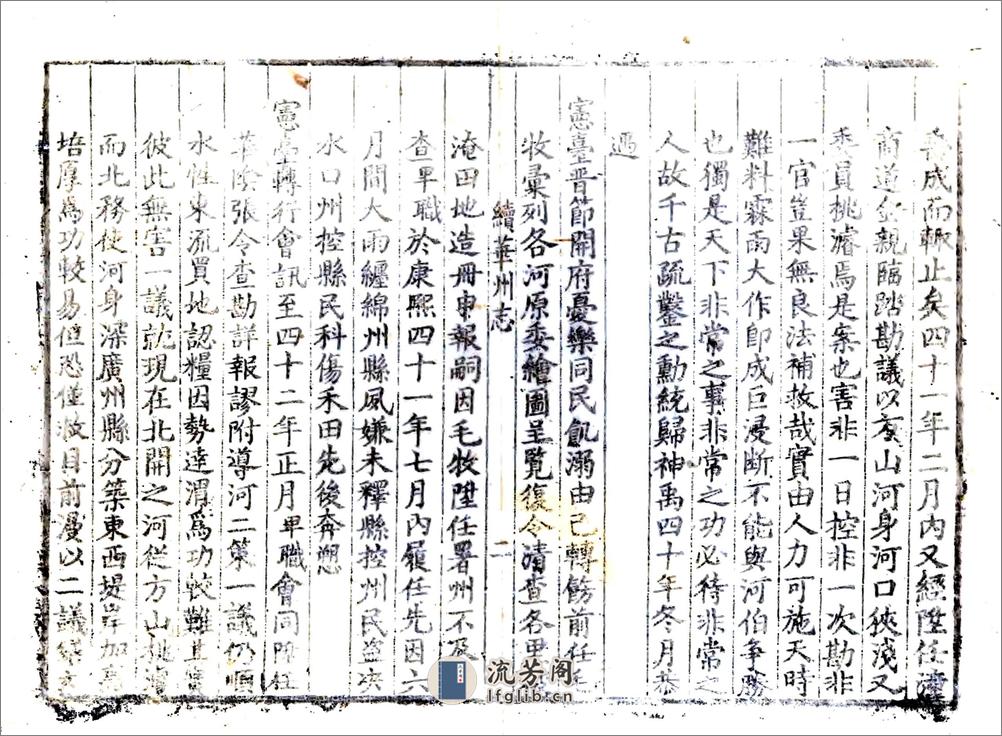 成而輒止矣四十一年二月內又經陞任潼
商道金親臨踏勘議以方山河身河口狹淺又
委員挑濬焉是案也害非一日控非一次勘非
一官豈果無良法補救哉實由人力可施天時
難料霖雨大作卽成巨浸斷不能與河伯爭勝
也獨是天下非常之事非常之功必待非常之
人故千古疏鑿之勳統歸神禹四十年冬月恭
遇
憲臺晋節開府憂樂同民飢溺由己轉飭前任
牧彙列各河原委繪圖呈覽復令清查各
續華州志
二
淹田地造冊申報嗣因毛牧陞任署州不
查卑職於康熙四十一年七月內履任先因六
月間大雨纏綿州縣夙嫌未釋縣控州民盜决
水口州控縣民科傷禾田先後奔愬
憲臺轉行會訊至四十二年正月卑職會同
華陰張令查勘詳報謬附導河二策一議仍順
水性東流買地認糧因勢達渭爲功較難
彼此無害一議就現在北開之河從方山挑濬
而北務使河身深廣州縣分築東西堤岸加高
培厚爲功較易但恐僅救目前漫以二議
流芳阁
lfglib.cn